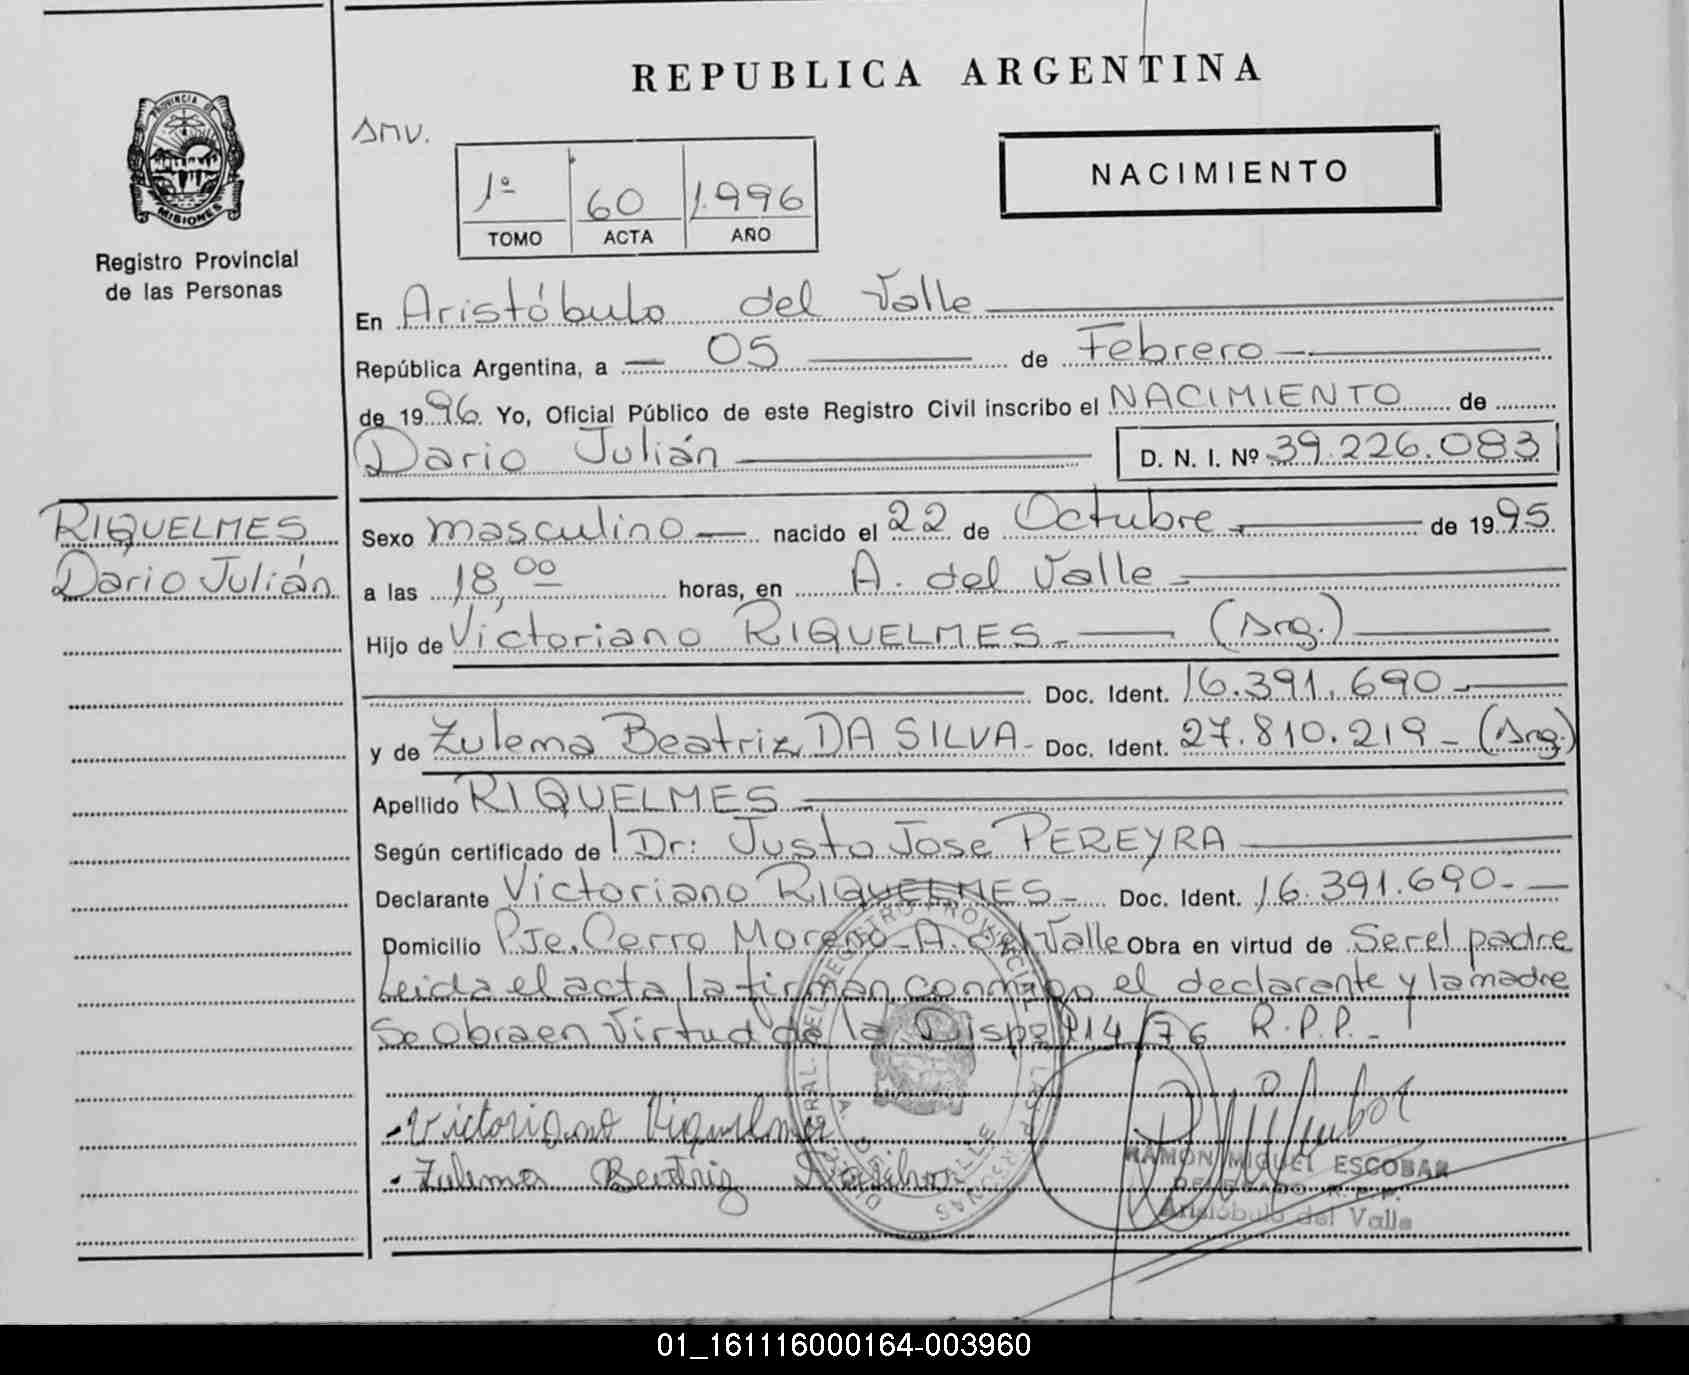 REPUBLICA ARGENTINA
PROVINCIA DE
MISIONES
Registro Provincial
de las Personas
1º 60 1.996
TOMO ACTA AÑO
NACIMIENTO
En Aristóbulo del Valle
República Argentina, a 05 de Febrero
de 1996. Yo, Oficial Público de este Registro Civil inscribo el NACIMIENTO de
Dario Julián D. N. I. Nº 39.226.083
RIQUELMES
Dario Julián
Sexo masculino nacido el 22 de Octubre de 1995.
a las 18,00 horas, en A. del Valle
Hijo de Victoriano RIQUELMES (Arg.)
Doc. Ident. 16.391.690
y de Zulema Beatriz DA SILVA - Doc. Ident. 27.810.219 - (Arg.)
Apellido RIQUELMES
Según certificado de Dr: Justo Jose PEREYRA
Declarante Victoriano RIQUELMES - Doc. Ident. 16.391.690-
Domicilio Pje. Cerro Moreno - A. del Valle Obra en virtud de Ser el padre
Leida el acta la firman conmigo el declarante y la madre
Se Obra en Virtud de la Disp. 214/76 R.P.P. -
- Victoriano Riquelmes
- Zulema Beatriz Dasilva
RAMON MIGUEL ESCOBAR
DELEGADO R. P. P.
Aristóbulo del Valle
01_161116000164-003960